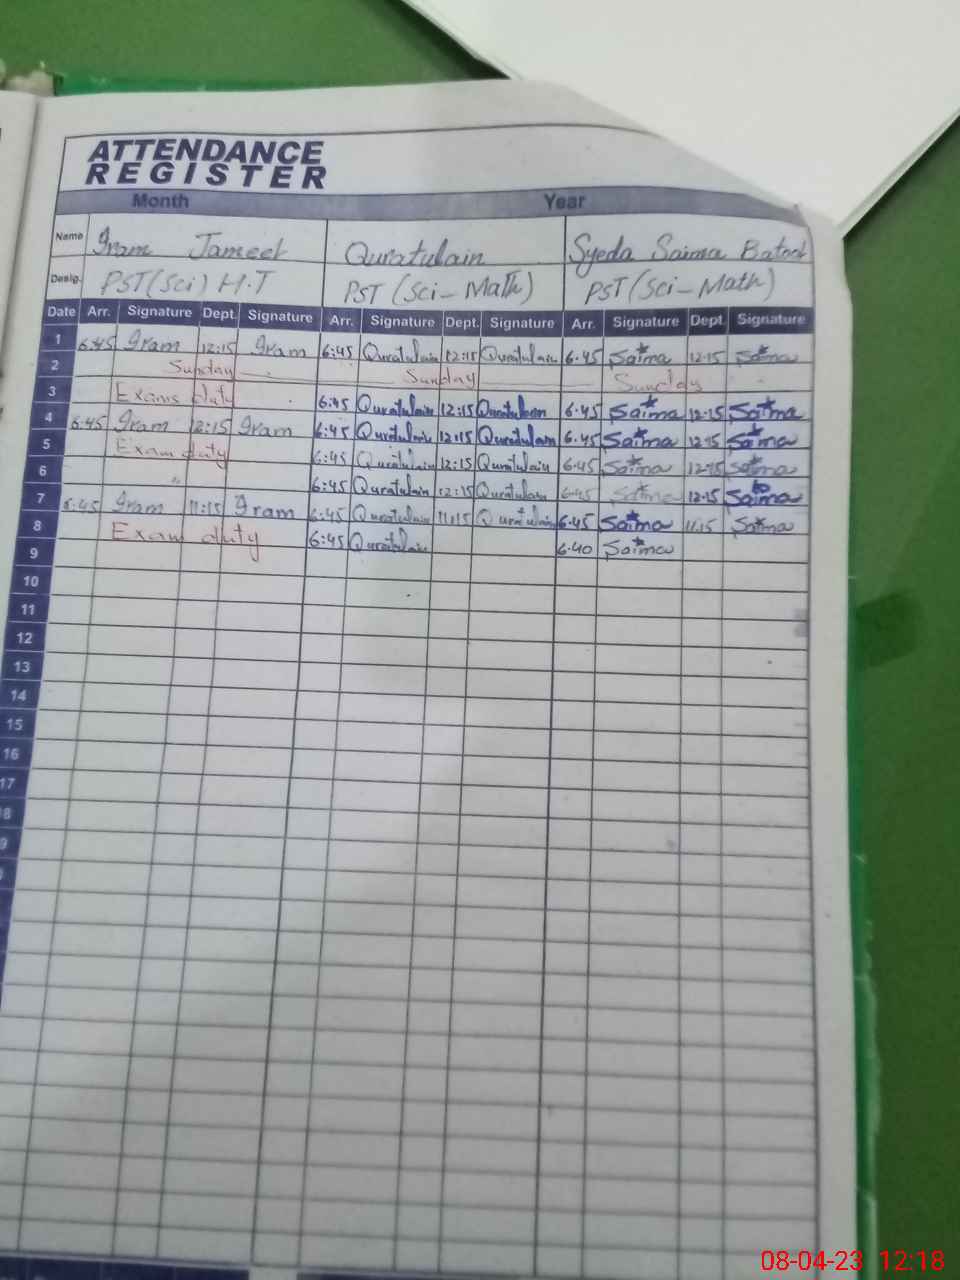 ATTENDANCE
REGISTER
Month Year
Name Iram Jameel Quratulain Syeda Saima Batool
Desig. PST (Sci) H.T PST (Sci-Math) PST (Sci-Math)
Date Arr. Signature Dept. Signature Arr. Signature Dept. Signature Arr. Signature Dept. Signature
1 6:45 Iram 12:15 Iram 6:45 Quratulain 12:15 Quratulain 6.45 Saima 12.15 Saima
2 Sunday Sunday Sunday
3 Exams duty 6:45 Quratulain 12:15 Quratulain 6.45 Saima 12.15 Saima
4 6:45 Iram 12:15 Iram 6:45 Quratulain 12:15 Quratulain 6.45 Saima 12.15 Saima
5 Exam duty 6:45 Quratulain 12:15 Quratulain 6.45 Saima 12.15 Saima
6 " 6:45 Quratulain 12:15 Quratulain 6.45 Saima 12.15 Saima
7 6:45 Iram 11:15 Iram 6:45 Quratulain 11:15 Quratulain 6.45 Saima 11.15 Saima
8 Exam duty 6:45 Quratulain 6.40 Saima
9
10
11
12
13
14
15
16
17
08-04-23 12:18